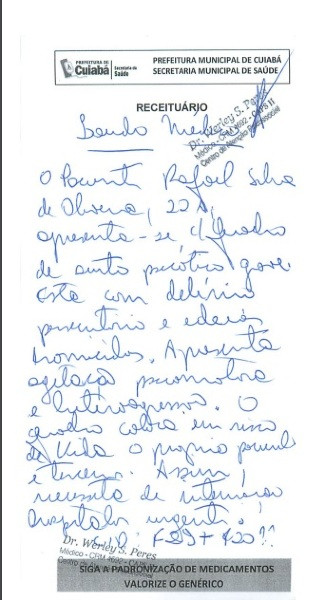 PREFEITURA DE
Cuiabá
Secretaria de
Saúde
PREFEITURA MUNICIPAL DE CUIABÁ
SECRETARIA MUNICIPAL DE SAÚDE
RECEITUÁRIO
Laudo Médico
Dr. Werley S. Peres
Médico - CRM 4692 - CAPS II
Centro de Atenção Psicossocial
O Paciente Rafael Silva
de Oliveira, 22 A,
apresenta-se c/ Quadro
de surto psicótico grave
Esta com delírio
persecutório e ideias
homicidas. Apresenta
agitação psicomotora
e heteroagressão. O
quadro coloca em risco
de vida o próprio paciente
e terceiros. Assim,
necessita de internação
hospitalar urgente!
Dr. Werley S. Peres
Médico - CRM 4692 - CAPS II
SIGA A PADRONIZAÇÃO DE MEDICAMENTOS
VALORIZE O GENÉRICO